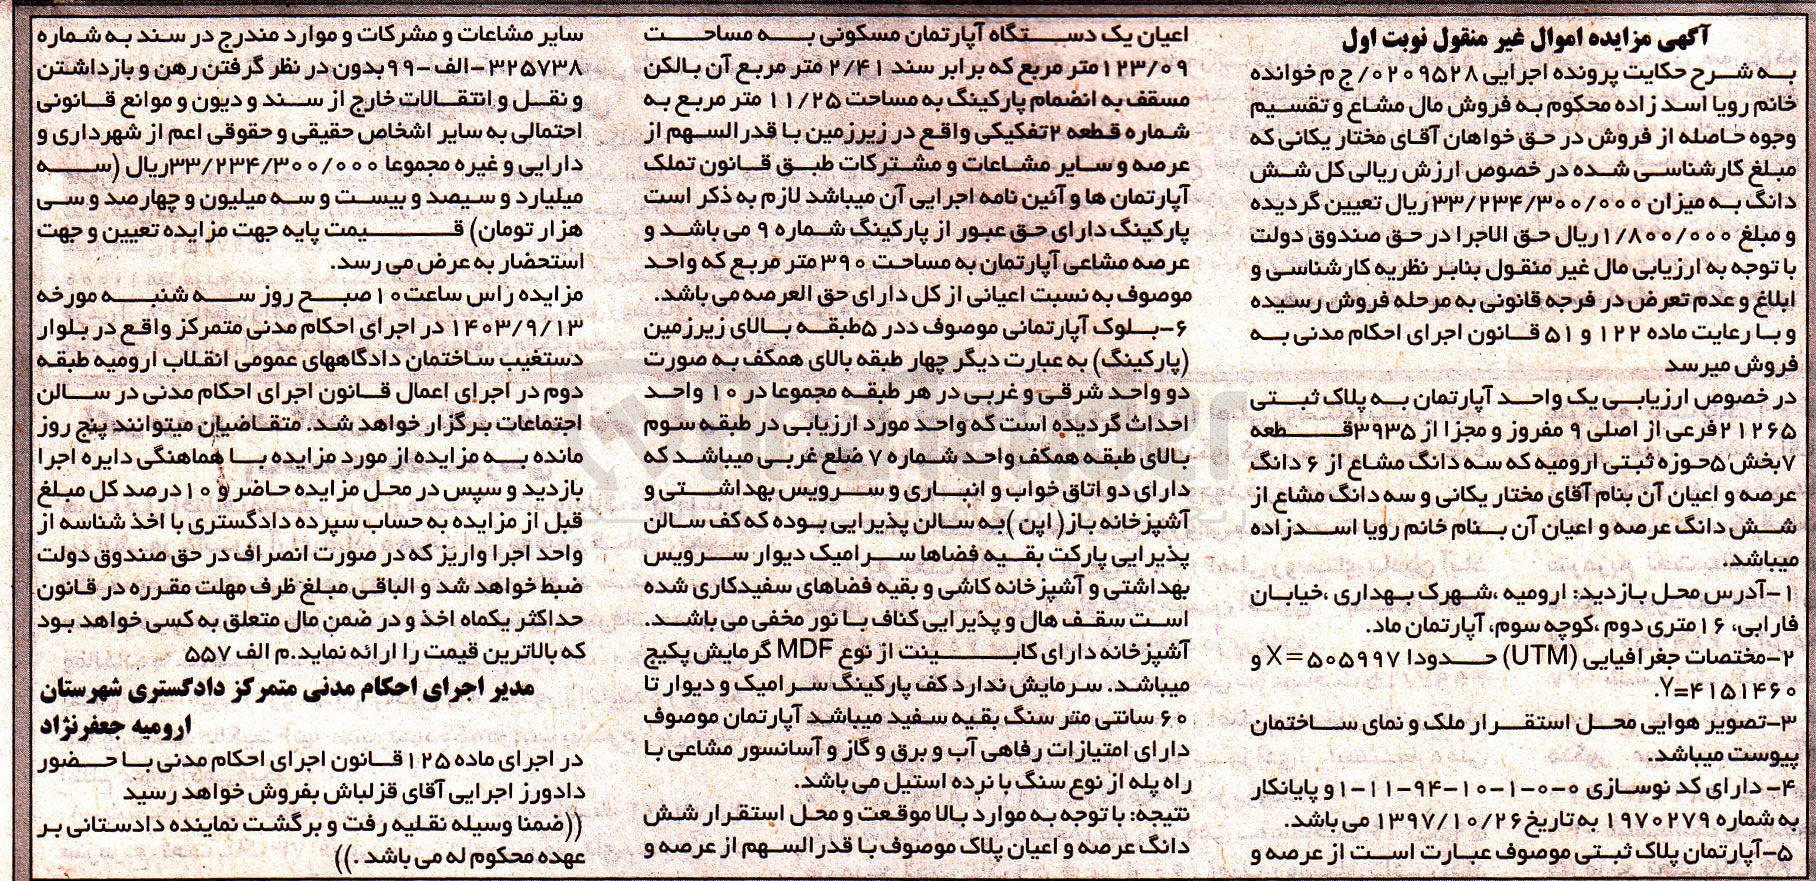 آگهی مزایده اموال غیر منقول نوبت اول
به شرح حکایت پرونده اجرایی ۰۲۰۹۵۲۸/ ج م خوانده
خانم رویا اسد زاده محکوم به فروش مال مشاع و تقسیم
وجوه حاصله از فروش در حق خواهان آقای مختار یکانی که
مبلغ کارشناسی شده در خصوص ارزش ریالی کل شش
دانگ به میزان ۳۳/۲۳۴/۳۰۰/۰۰۰ ریال تعیین گردیده
و مبلغ ۱/۸۰۰/۰۰۰ ریال حق الاجرا در حق صندوق دولت
با توجه به ارزیابی مال غیر منقول بنابر نظریه کارشناسی و
ابلاغ و عدم تعرض در فرجه قانونی به مرحله فروش رسیده
و با رعایت ماده ۱۲۲ و ۵۱ قانون اجرای احکام مدنی به
فروش میرسد
در خصوص ارزیابی یک واحد آپارتمان به پلاک ثبتی
۲۱۲۶۵ فرعی از اصلی ۹ مفروز و مجزا از ۳۹۳۵ قطعه
۷ بخش ۵ حوزه ثبتی ارومیه که سه دانگ مشاع از ۶ دانگ
عرصه و اعیان آن بنام آقای مختار یکانی و سه دانگ مشاع از
شش دانگ عرصه و اعیان آن بنام خانم رویا اسدزاده
میباشد.
۱-آدرس محل بازدید: ارومیه ،شهرک بهداری ،خیابان
فارابی، ۱۶ متری دوم ،کوچه سوم، آپارتمان ماد.
۲-مختصات جغرافیایی (UTM) حدودا X=۵۰۵۹۹۷ و
Y=۴۱۵۱۴۶۰.
۳-تصویر هوایی محل استقرار ملک و نمای ساختمان
پیوست میباشد.
۴- دارای کد نوسازی ۰-۰-۱-۱۰-۹۴-۱۱-۱ و پایانکار
به شماره ۱۹۷۰۲۷۹ به تاریخ ۱۳۹۷/۱۰/۲۶ می باشد.
۵-آپارتمان پلاک ثبتی موصوف عبارت است از عرصه و
اعیان یک دستگاه آپارتمان مسکونی به مساحت
۱۲۳/۰۹ متر مربع که برابر سند ۲/۴۱ متر مربع آن بالکن
مسقف به انضمام پارکینگ به مساحت ۱۱/۲۵ متر مربع به
شماره قطعه ۲ تفکیکی واقع در زیرزمین با قدرالسهم از
عرصه و سایر مشاعات و مشترکات طبق قانون تملک
آپارتمان ها و آئین نامه اجرایی آن میباشد لازم به ذکر است
پارکینگ دارای حق عبور از پارکینگ شماره ۹ می باشد و
عرصه مشاعی آپارتمان به مساحت ۳۹۰ متر مربع که واحد
موصوف به نسبت اعیانی از کل دارای حق العرصه می باشد.
۶-بلوک آپارتمانی موصوف ددر ۵ طبقه بالای زیرزمین
(پارکینگ) به عبارت دیگر چهار طبقه بالای همکف به صورت
دو واحد شرقی و غربی در هر طبقه مجموعا در ۱۰ واحد
احداث گردیده است که واحد مورد ارزیابی در طبقه سوم
بالای طبقه همکف واحد شماره ۷ ضلع غربی میباشد که
دارای دو اتاق خواب و انباری و سرویس بهداشتی و
آشپزخانه باز( اپن )به سالن پذیرایی بوده که کف سالن
پذیرایی پارکت بقیه فضاها سرامیک دیوار سرویس
بهداشتی و آشپزخانه کاشی و بقیه فضاهای سفیدکاری شده
است سقف هال و پذیرایی کناف با نور مخفی می باشد.
آشپزخانه دارای کابینت از نوع MDF گرمایش پکیج
میباشد. سرمایش ندارد کف پارکینگ سرامیک و دیوار تا
۶۰ سانتی متر سنگ بقیه سفید میباشد آپارتمان موصوف
دارای امتیازات رفاهی آب و برق و گاز و آسانسور مشاعی با
راه پله از نوع سنگ با نرده استیل می باشد.
نتیجه: با توجه به موارد بالا موقعت و محل استقرار شش
دانگ عرصه و اعیان پلاک موصوف با قدرالسهم از عرصه و
سایر مشاعات و مشرکات و موارد مندرج در سند به شماره
۳۲۵۷۳۸-الف-۹۹ بدون در نظر گرفتن رهن و بازداشتن
و نقل و انتقالات خارج از سند و دیون و موانع قانونی
احتمالی به سایر اشخاص حقیقی و حقوقی اعم از شهرداری و
دارایی و غیره مجموعا ۳۳/۲۳۴/۳۰۰/۰۰۰ریال (سه
میلیارد و سیصد و بیست و سه میلیون و چهارصد و سی
هزار تومان) قیمت پایه جهت مزایده تعیین و جهت
استحضار به عرض می رسد.
مزایده راس ساعت ۱۰ صبح روز سه شنبه مورخه
۱۴۰۳/۹/۱۳ در اجرای احکام مدنی متمرکز واقع در بلوار
دستغیب ساختمان دادگاههای عمومی انقلاب ارومیه طبقه
دوم در اجرای اعمال قانون اجرای احکام مدنی در سالن
اجتماعات برگزار خواهد شد. متقاضیان میتوانند پنج روز
مانده به مزایده از مورد مزایده با هماهنگی دایره اجرا
بازدید و سپس در محل مزایده حاضر و ۱۰ درصد کل مبلغ
قبل از مزایده به حساب سپرده دادگستری با اخذ شناسه از
واحد اجرا واریز که در صورت انصراف در حق صندوق دولت
ضبط خواهد شد و الباقی مبلغ ظرف مهلت مقرره در قانون
حداکثر یکماه اخذ و در ضمن مال متعلق به کسی خواهد بود
که بالاترین قیمت را ارائه نماید.م الف ۵۵۷
مدیر اجرای احکام مدنی متمرکز دادگستری شهرستان
ارومیه جعفرنژاد
در اجرای ماده ۱۲۵ قانون اجرای احکام مدنی با حضور
دادورز اجرایی آقای قزلباش بفروش خواهد رسید
((ضمنا وسیله نقلیه رفت و برگشت نماینده دادستانی بر
عهده محکوم له می باشد .))